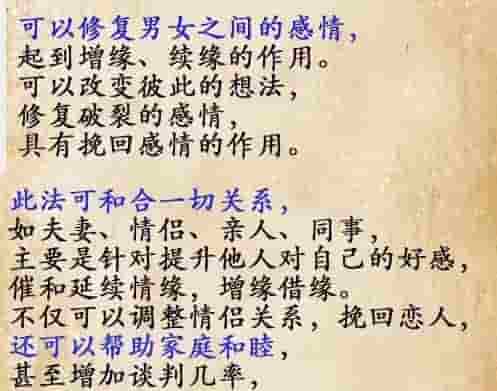 可以修复男女之间的感情，
起到增缘、续缘的作用。
可以改变彼此的想法，
修复破裂的感情，
具有挽回感情的作用。
此法可和合一切关系，
如夫妻、情侣、亲人、同事，
主要是针对提升他人对自己的好感，
催和延续情缘，增缘借缘。
不仅可以调整情侣关系，挽回恋人，
还可以帮助家庭和睦，
甚至增加谈判几率，